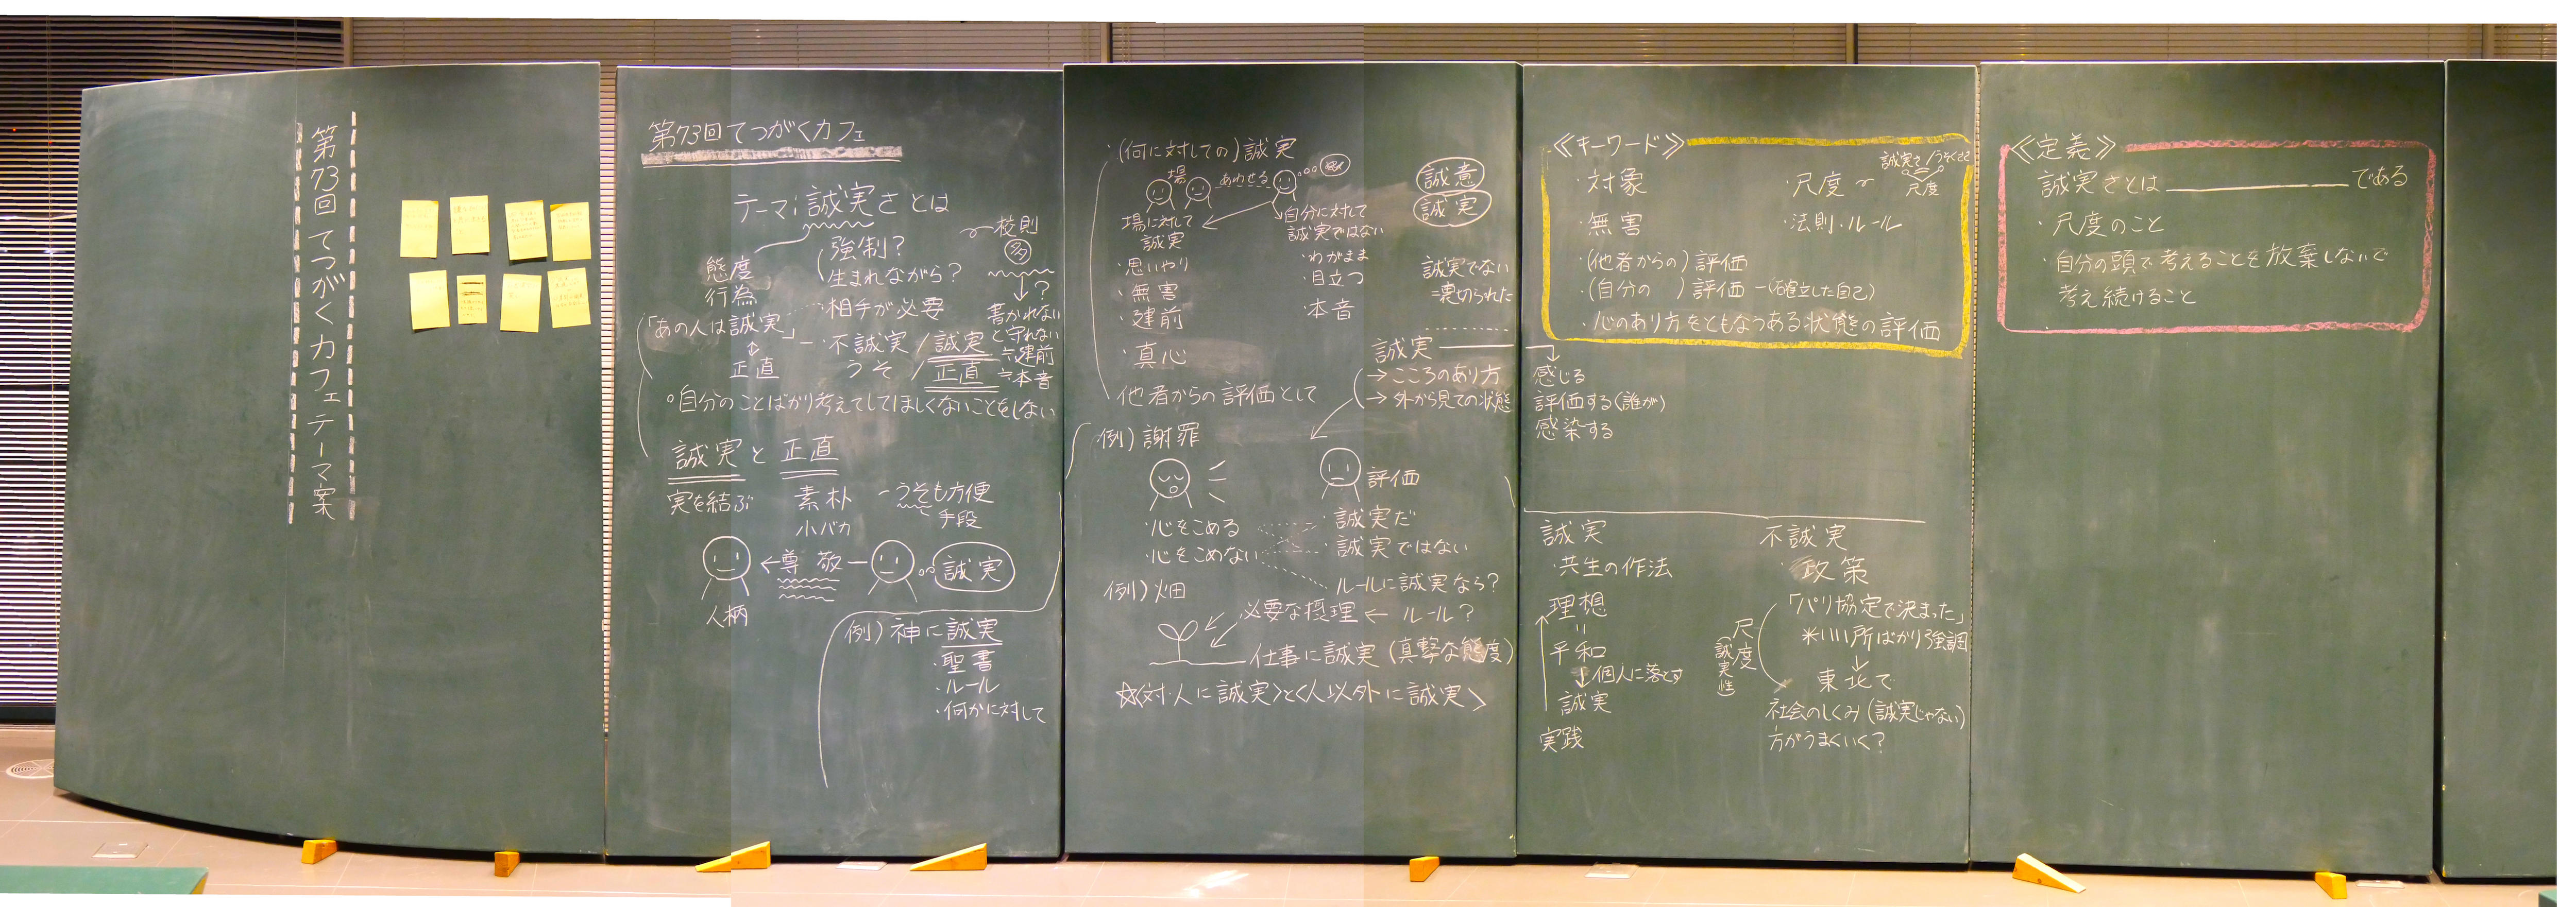 第73回 てつがくカフェテーマ案
第73回てつがくカフェ
テーマ：誠実さとは
態度
行為
強制？
生まれながら？
相手が必要
校則
多
？
書かれない
と守れない
≒建前
≒本音
「あの人は誠実」
正直
不誠実/誠実
うそ/正直
自分のことばかり考えてしてほしくないことをしない
誠実と正直
実を結ぶ
素朴
小バカ
うそも方便
手段
←尊敬
誠実
人柄
例）神に誠実
・聖書
・ルール
・何かに対して
・(何に対しての)誠実
場
あわせる
場に対して
誠実
・思いやり
・無害
・建前
・真心
自分に対して
誠実ではない
・わがまま
・目立つ
・本音
他者からの評価として
誠意
誠実
誠実でない
=裏切られた
誠実
→こころのあり方
→外から見ての状態
例）謝罪
評価
・心をこめる
・心をこめない
・誠実だ
・誠実ではない
ルールに誠実なら？
例）畑
必要な摂理←ルール？
仕事に誠実(真摯な態度)
☆〈対・人に誠実〉と〈人以外に誠実〉
≪キーワード≫
・対象
・無害
・尺度
誠実さ/うそくささ
尺度
・法則・ルール
・(他者からの)評価
・(自分の )評価-(確立した自己)
・心のあり方をともなうある状態の評価
感じる
評価する(誰が)
感染する
誠実
・共生の作法
理想
平和
個人に落とす
誠実
実践
不誠実
・政策
「パリ協定で決まった」
※いい所ばかり強調
尺度
(誠実性)
東北で
社会のしくみ(誠実じゃない)
方がうまくいく？
≪定義≫
誠実さとは＿＿＿＿＿＿である
・尺度のこと
・自分の頭で考えることを放棄しないで
考え続けること